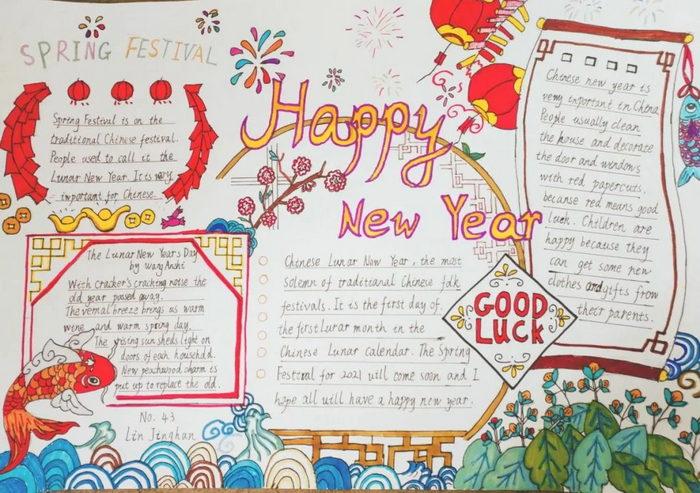 SPRING FESTIVAL
Spring Festival is on the
traditional Chinese festival.
People used to call it the
Lunar New Year. It is very
important for Chinese.
Happy
New Year
Chinese new year is
very important in China
People usually clean
the house and decorate
the door and windows
with red papercuts,
because red means good
luck. Children are
happy because they
can get some new
clothes and gifts from
their parents.
The Lunar New Year's Day
by Wang Anshi
With Cracker's cracking noise the
old year passed away.
The vernal breeze brings us warm
wine and warm spring day.
The rising sun sheds light on
doors of each househld.
New peachwood charm is
put up to replace the old.
No. 43
Lin Jinghan
Chinese Lunar New Year, the most
solemn of traditional Chinese folk
festivals. It is the first day of
the first lurar month in the
Chinese Lunar calendar. The Spring
Festival for 2021 will come soon and I
hope all will have a happy new year.
GOOD
LUCK